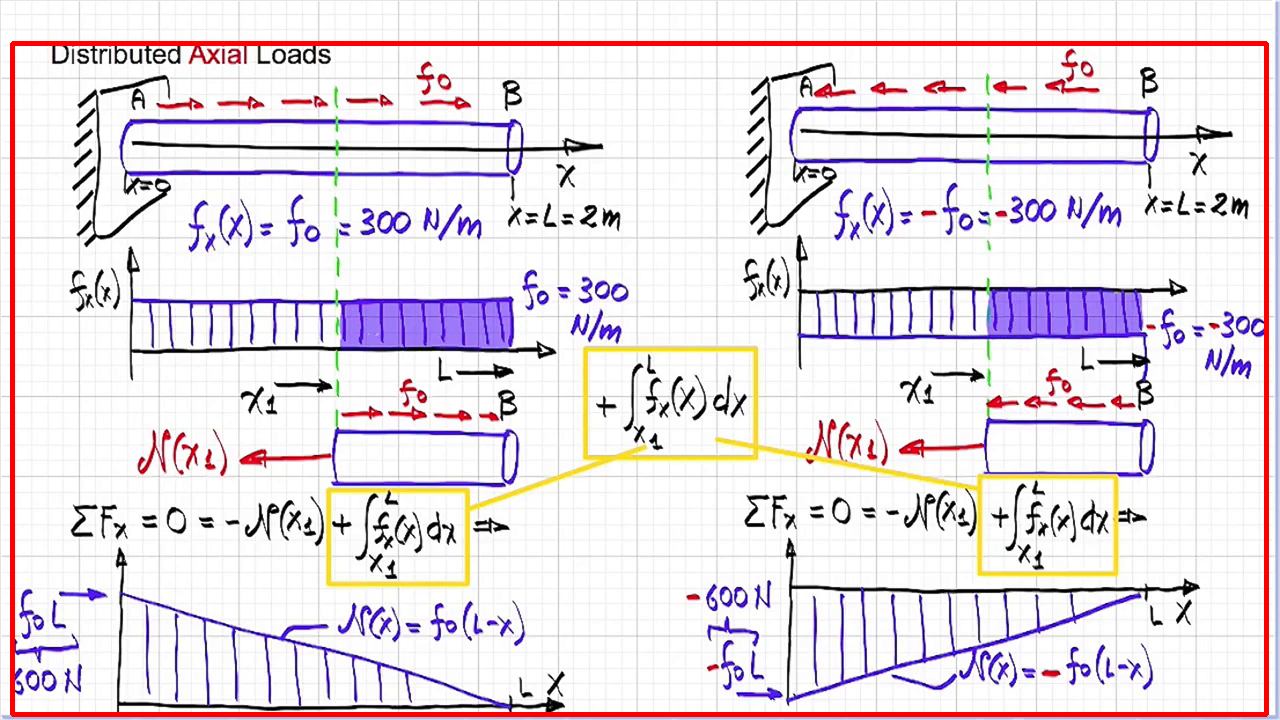 Distributed Axial Loads
A
f₀
B
x=0
x
fₓ(x) = f₀ = 300 N/m
x = L = 2m
fₓ(x)
f₀ = 300
N/m
L
x₁
f₀
B
N(x₁)
ΣFₓ = 0 = -N(x₁) + ∫ₓ₁ᴸ fₓ(x) dx ⇒
f₀L
600 N
N(x) = f₀(L-x)
L x
+ ∫ₓ₁ᴸ fₓ(x) dx
A
f₀
B
x=0
x
fₓ(x) = -f₀ = -300 N/m
x = L = 2m
fₓ(x)
-f₀ = -300
N/m
L
x₁
f₀
B
N(x₁)
ΣFₓ = 0 = -N(x₁) + ∫ₓ₁ᴸ fₓ(x) dx ⇒
-600 N
-f₀L
L x
N(x) = -f₀(L-x)